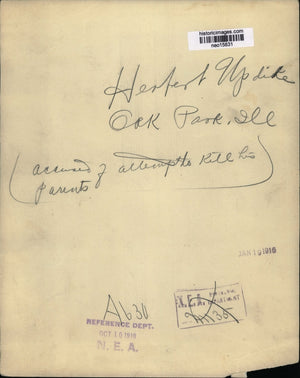 historicimages.com
neo15631
Herbert Updike
Oak Park, Ill
(accused of attempt to Kill his
parents)
JAN 19 1916
A630
REFERENCE DEPT.
OCT 10 1916
N. E. A.
N.E.A.
DEPARTMENT